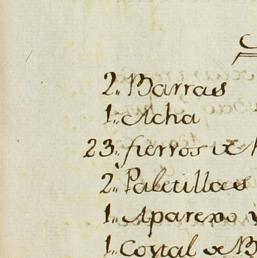 2.. Barras
1.. Acha
23.. fierros de
2.. Paletillas
1.. Aparejo
1.. Costal de